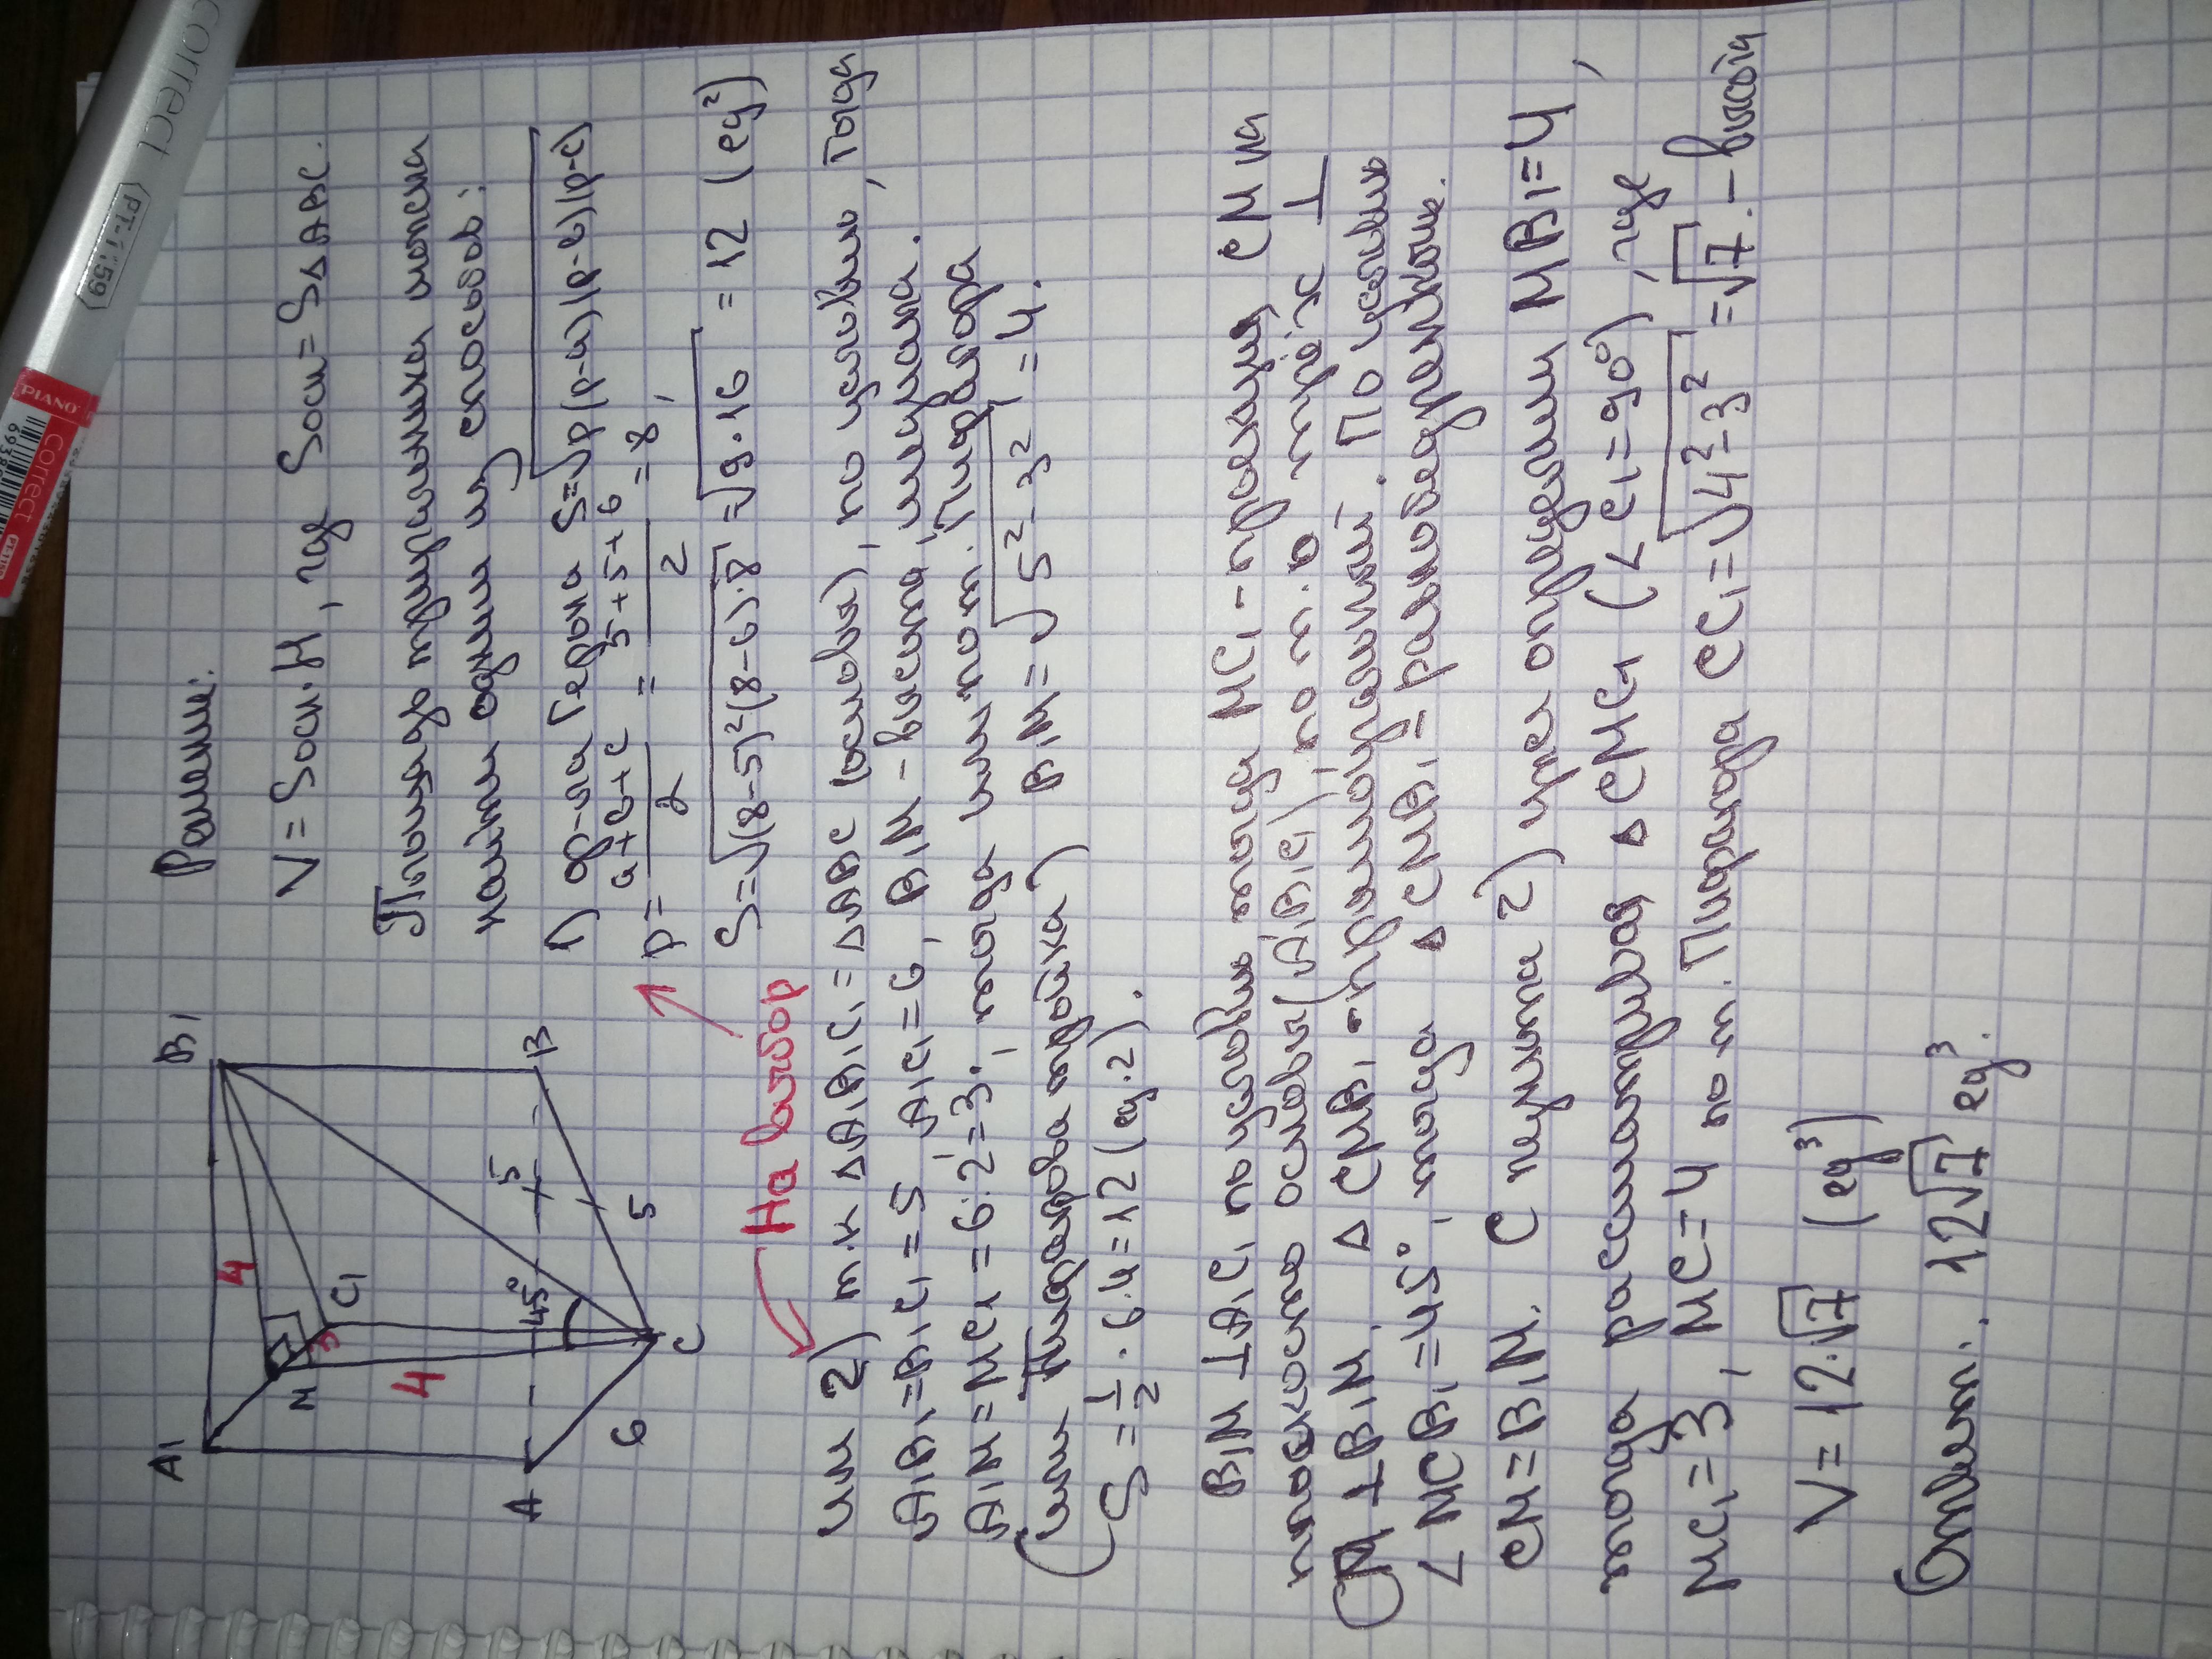 Решение:
V = Sосн. H, где Sосн = S△ABC.
Площадь треугольника можна
найти одним из способов:
1) ф-ла Герона S=√p(p-a)(p-в)(p-c)
p = a+в+c / 2 = 5+5+6 / 2 = 8,
S=√(8-5)²(8-6)·8 = √9·16 = 12 (ед²)
На выбор
или 2) т.к △A1B1C1 = △ABC (основа), по условию, тогда
A1B1=B1C1=5 A1C1=6, B1M - высота, медиана.
A1M=MC1=6:2=3; тогда по т. Пифагора
(или Пифагорова тройка) B1M=√5²-3² = 4.
S = 1/2 · 6·4=12 (ед.2).
B1M ⊥ A1C1 по условию тогда MC1 - проекция CM на
плоскость основы (A1B1C1), по т. о трёх ⊥
CM ⊥ B1M. △CMB1 - прямоугольный. По условию
∠MCB1=45°, тогда △CMB1 = равнобедренный.
CM=B1M. С пункта 2) уже определили MB1=4,
тогда рассматривая △CMC1 (∠C1=90°), где
MC1=3, MC=4 по т. Пифагора CC1=√4²-3² =√7. - высота
V= 12·√7 (ед³)
Ответ: 12√7 ед³.
A1
B1
4
M
3
C1
4
45°
5
A
B
6
5
C
correct
(PT-1159)
PIANO
Correct